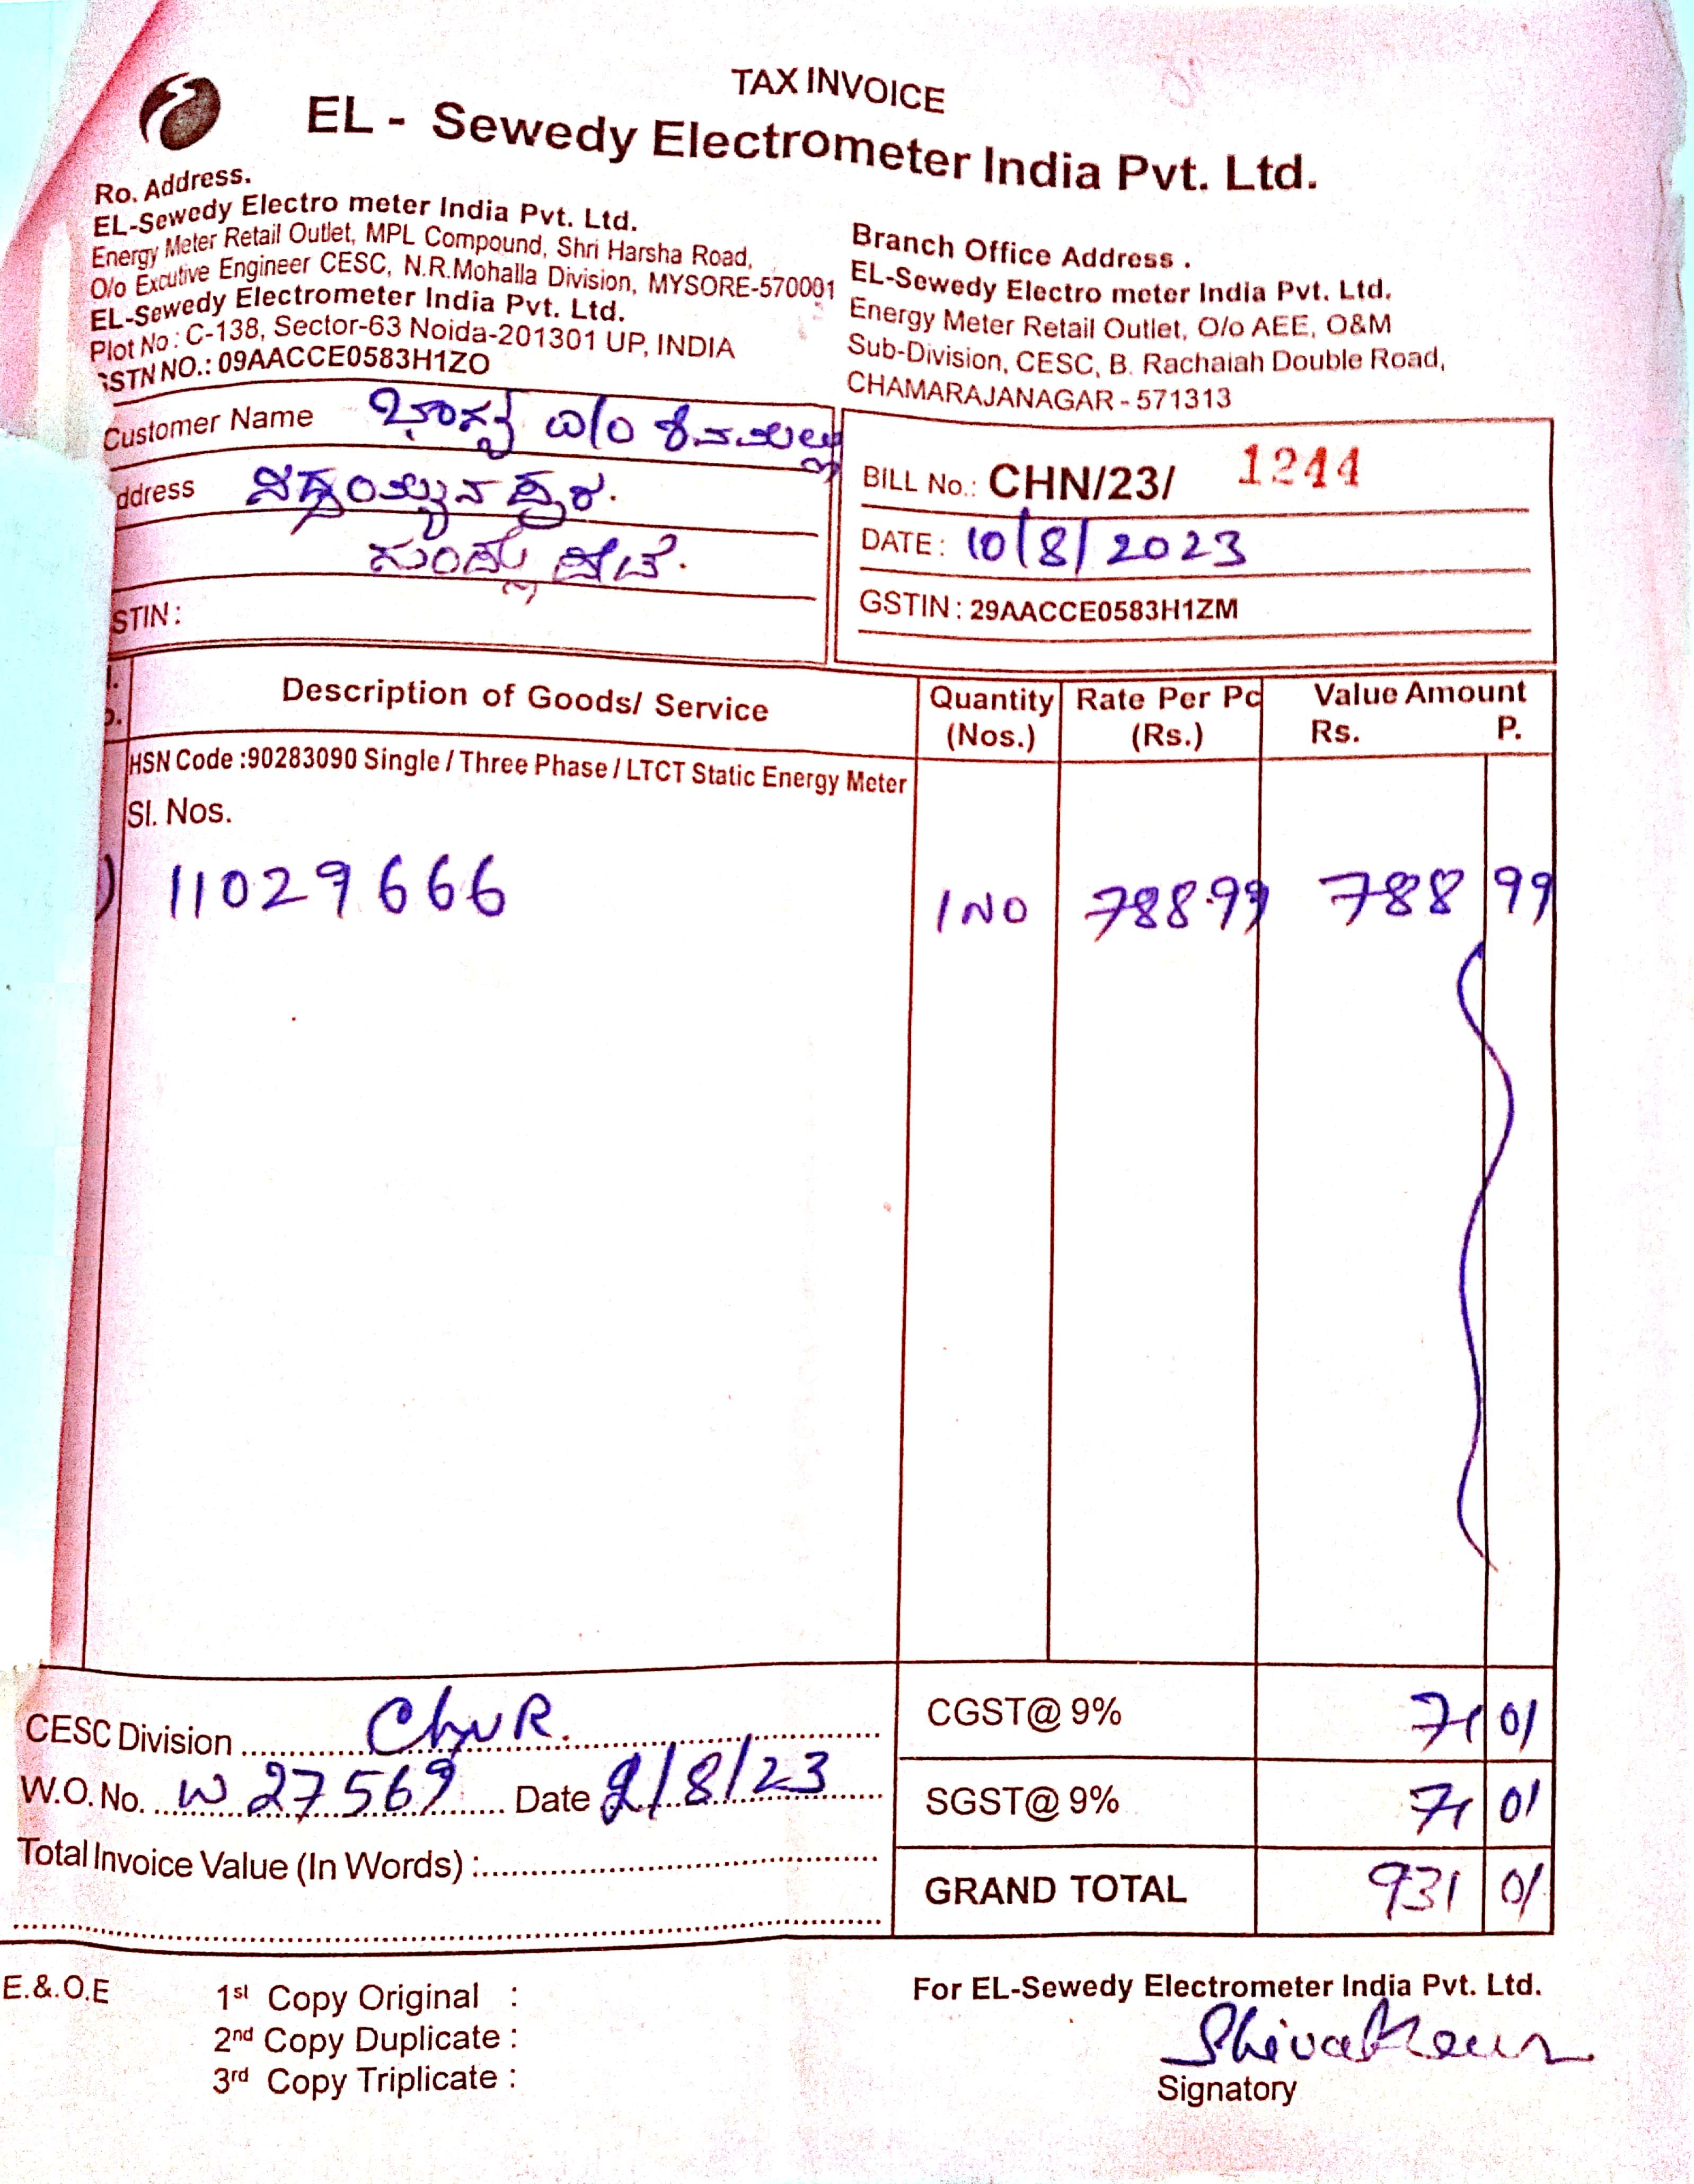 TAX INVOICE
EL - Sewedy Electrometer India Pvt. Ltd.
Ro. Address.
EL-Sewedy Electro meter India Pvt. Ltd.
Energy Meter Retail Outlet, MPL Compound, Shri Harsha Road,
O/o Excutive Engineer CESC, N.R.Mohalla Division, MYSORE-570001
EL-Sewedy Electrometer India Pvt. Ltd.
Plot No : C-138, Sector-63 Noida-201301 UP, INDIA
GSTN NO.: 09AACCE0583H1ZO
Branch Office Address .
EL-Sewedy Electro meter India Pvt. Ltd.
Energy Meter Retail Outlet, O/o AEE, O&M
Sub-Division, CESC, B. Rachaiah Double Road,
CHAMARAJANAGAR - 571313
Customer Name
ddress
ಗುಂಡ್ಲುಪೇಟೆ.
STIN :
BILL No.: CHN/23/ 1244
DATE : 10/8/2023
GSTIN : 29AACCE0583H1ZM
Description of Goods/ Service Quantity (Nos.) Rate Per Pc (Rs.) Value Amount Rs. P.
HSN Code :90283090 Single / Three Phase / LTCT Static Energy Meter
Sl. Nos.
) 11029666 1 NO 788.99 788 99
CESC Division ChNR. CGST@ 9% 71 01
W.O. No. W 27569 Date 2/8/23 SGST@ 9% 71 01
Total Invoice Value (In Words) : GRAND TOTAL 931 01
E.&.O.E
1st Copy Original :
2nd Copy Duplicate :
3rd Copy Triplicate :
For EL-Sewedy Electrometer India Pvt. Ltd.
Signatory